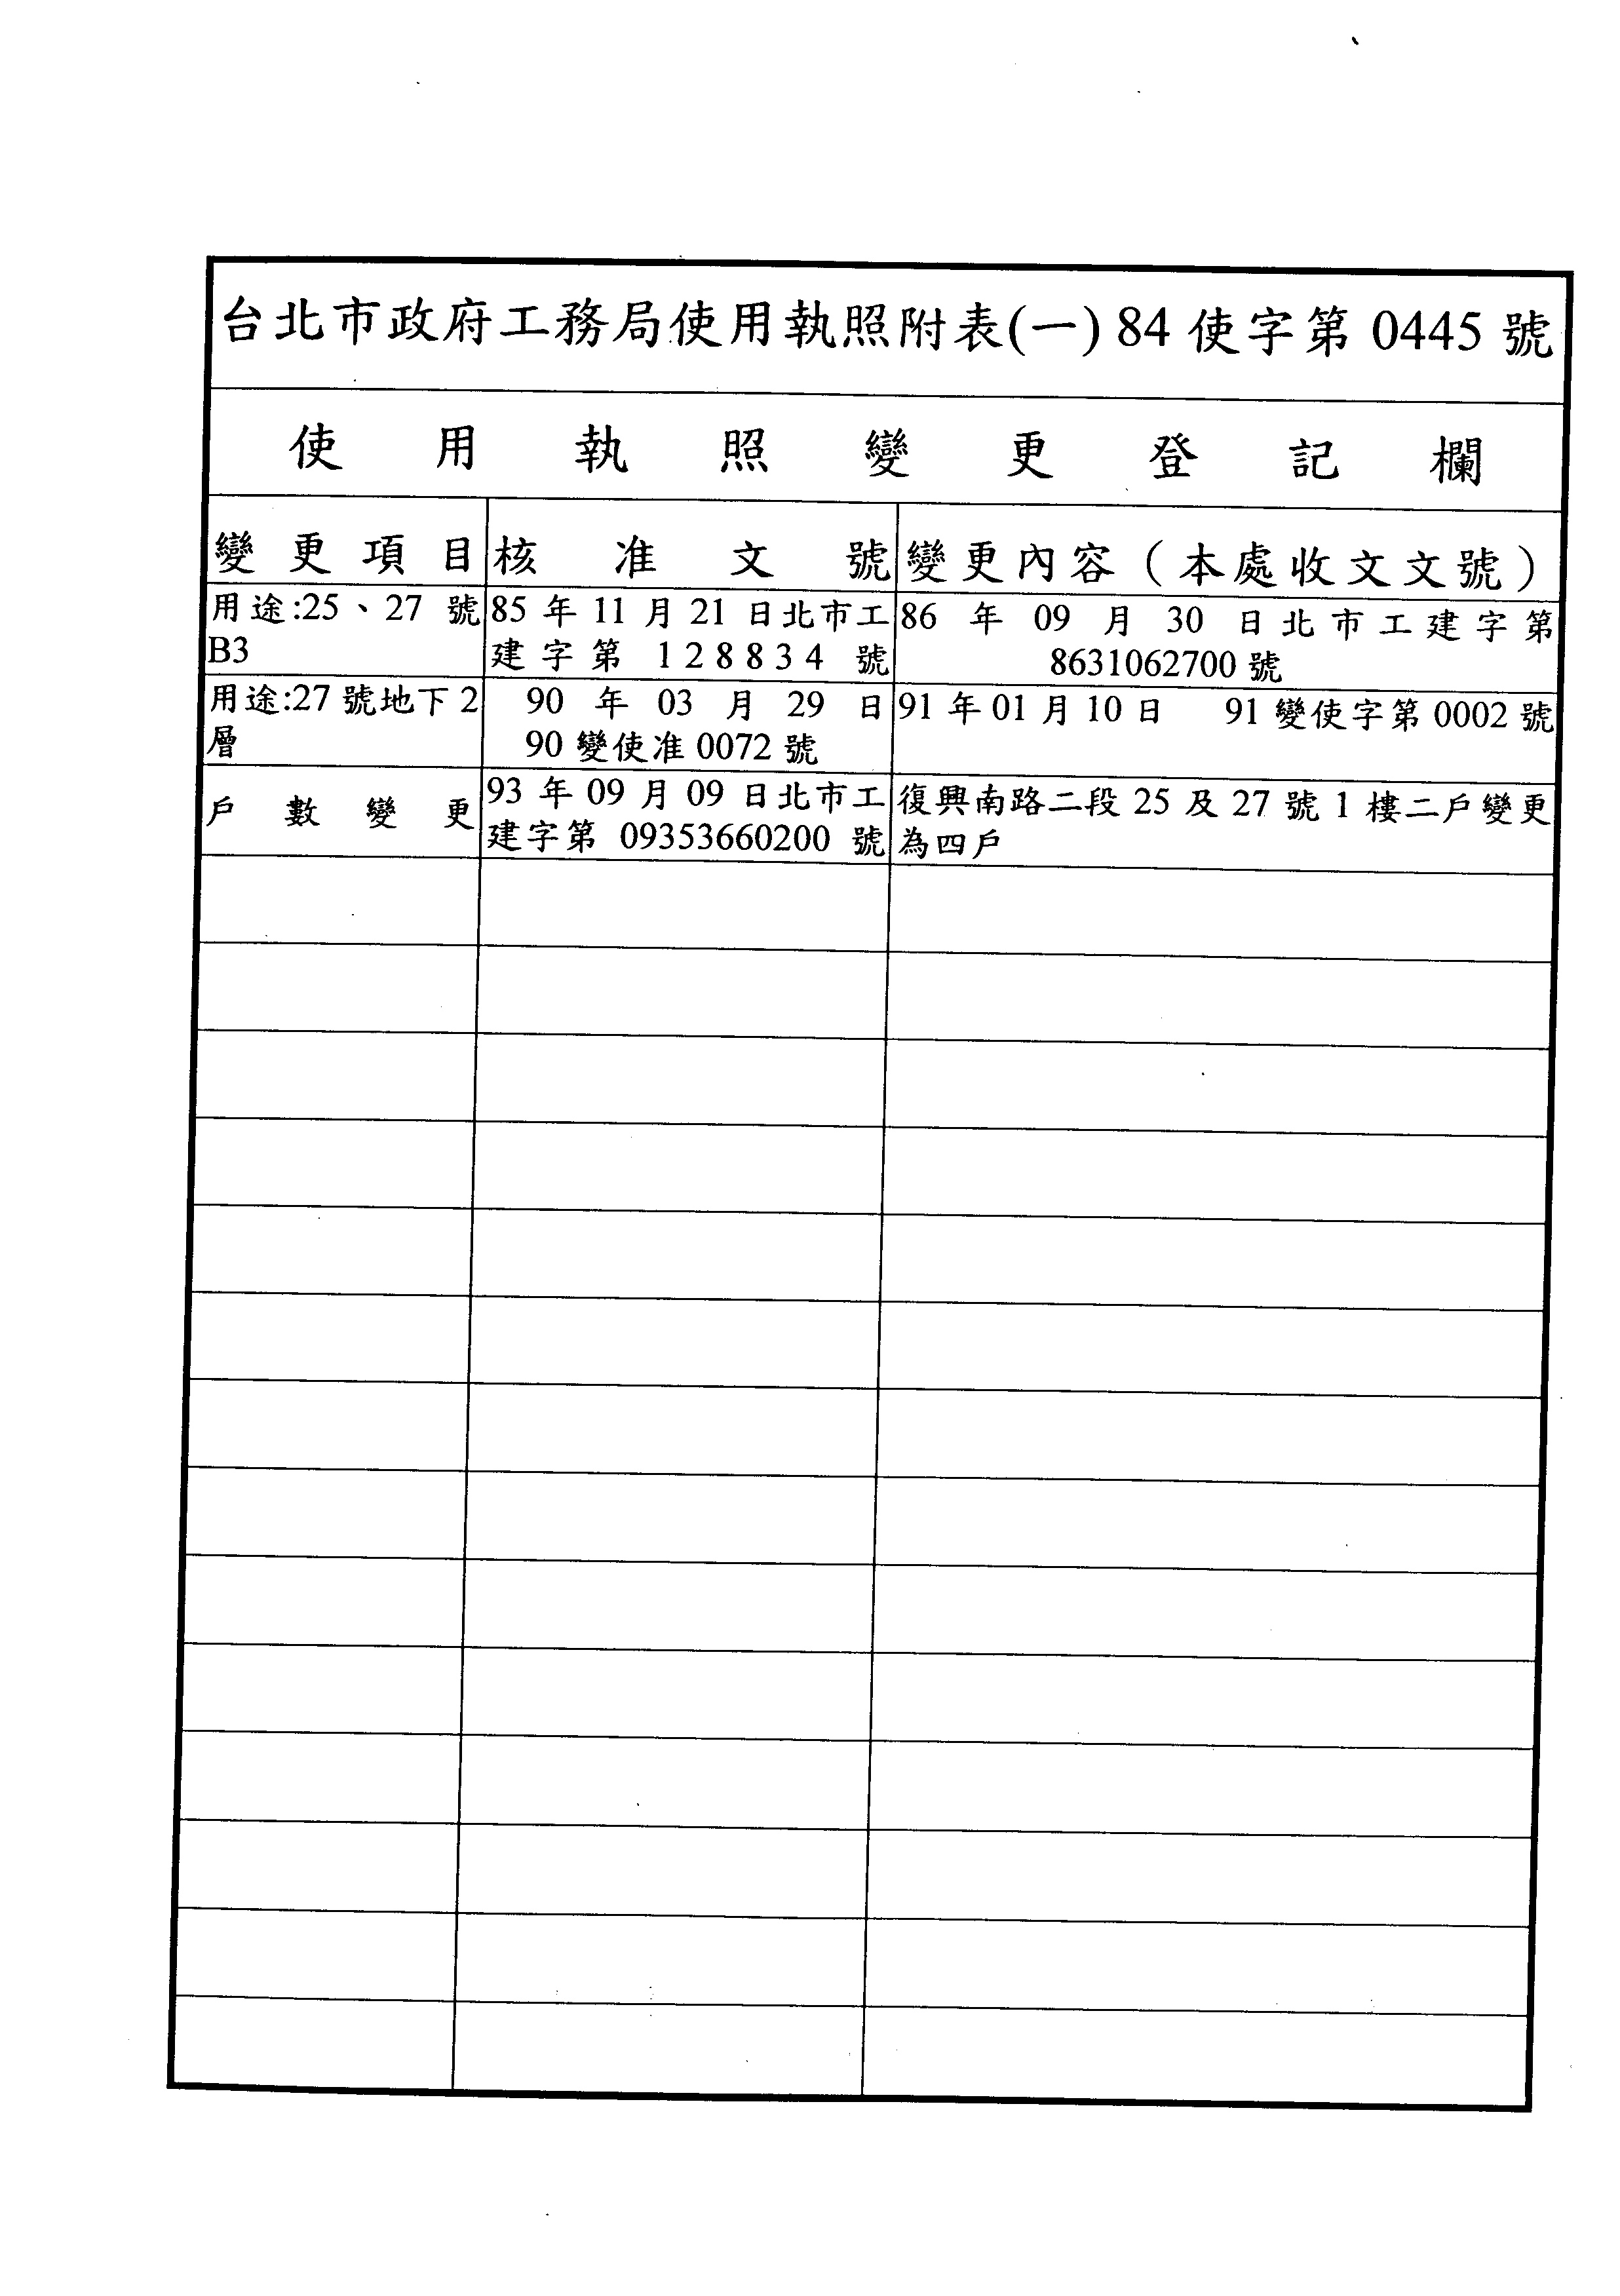 台北市政府工務局使用執照附表(一) 84 使字第 0445 號
使用執照變更登記欄
變更項目 核准文號 變更內容（本處收文文號）
用途:25、27 號
B3
85 年 11 月 21 日北市工
建字第 128834 號
86 年 09 月 30 日北市工建字第
8631062700 號
用途:27 號地下 2
層
90 年 03 月 29 日
90 變使准 0072 號
91 年 01 月 10 日 91 變使字第 0002 號
戶數變更
93 年 09 月 09 日北市工
建字第 09353660200 號
復興南路二段 25 及 27 號 1 樓二戶變更
為四戶